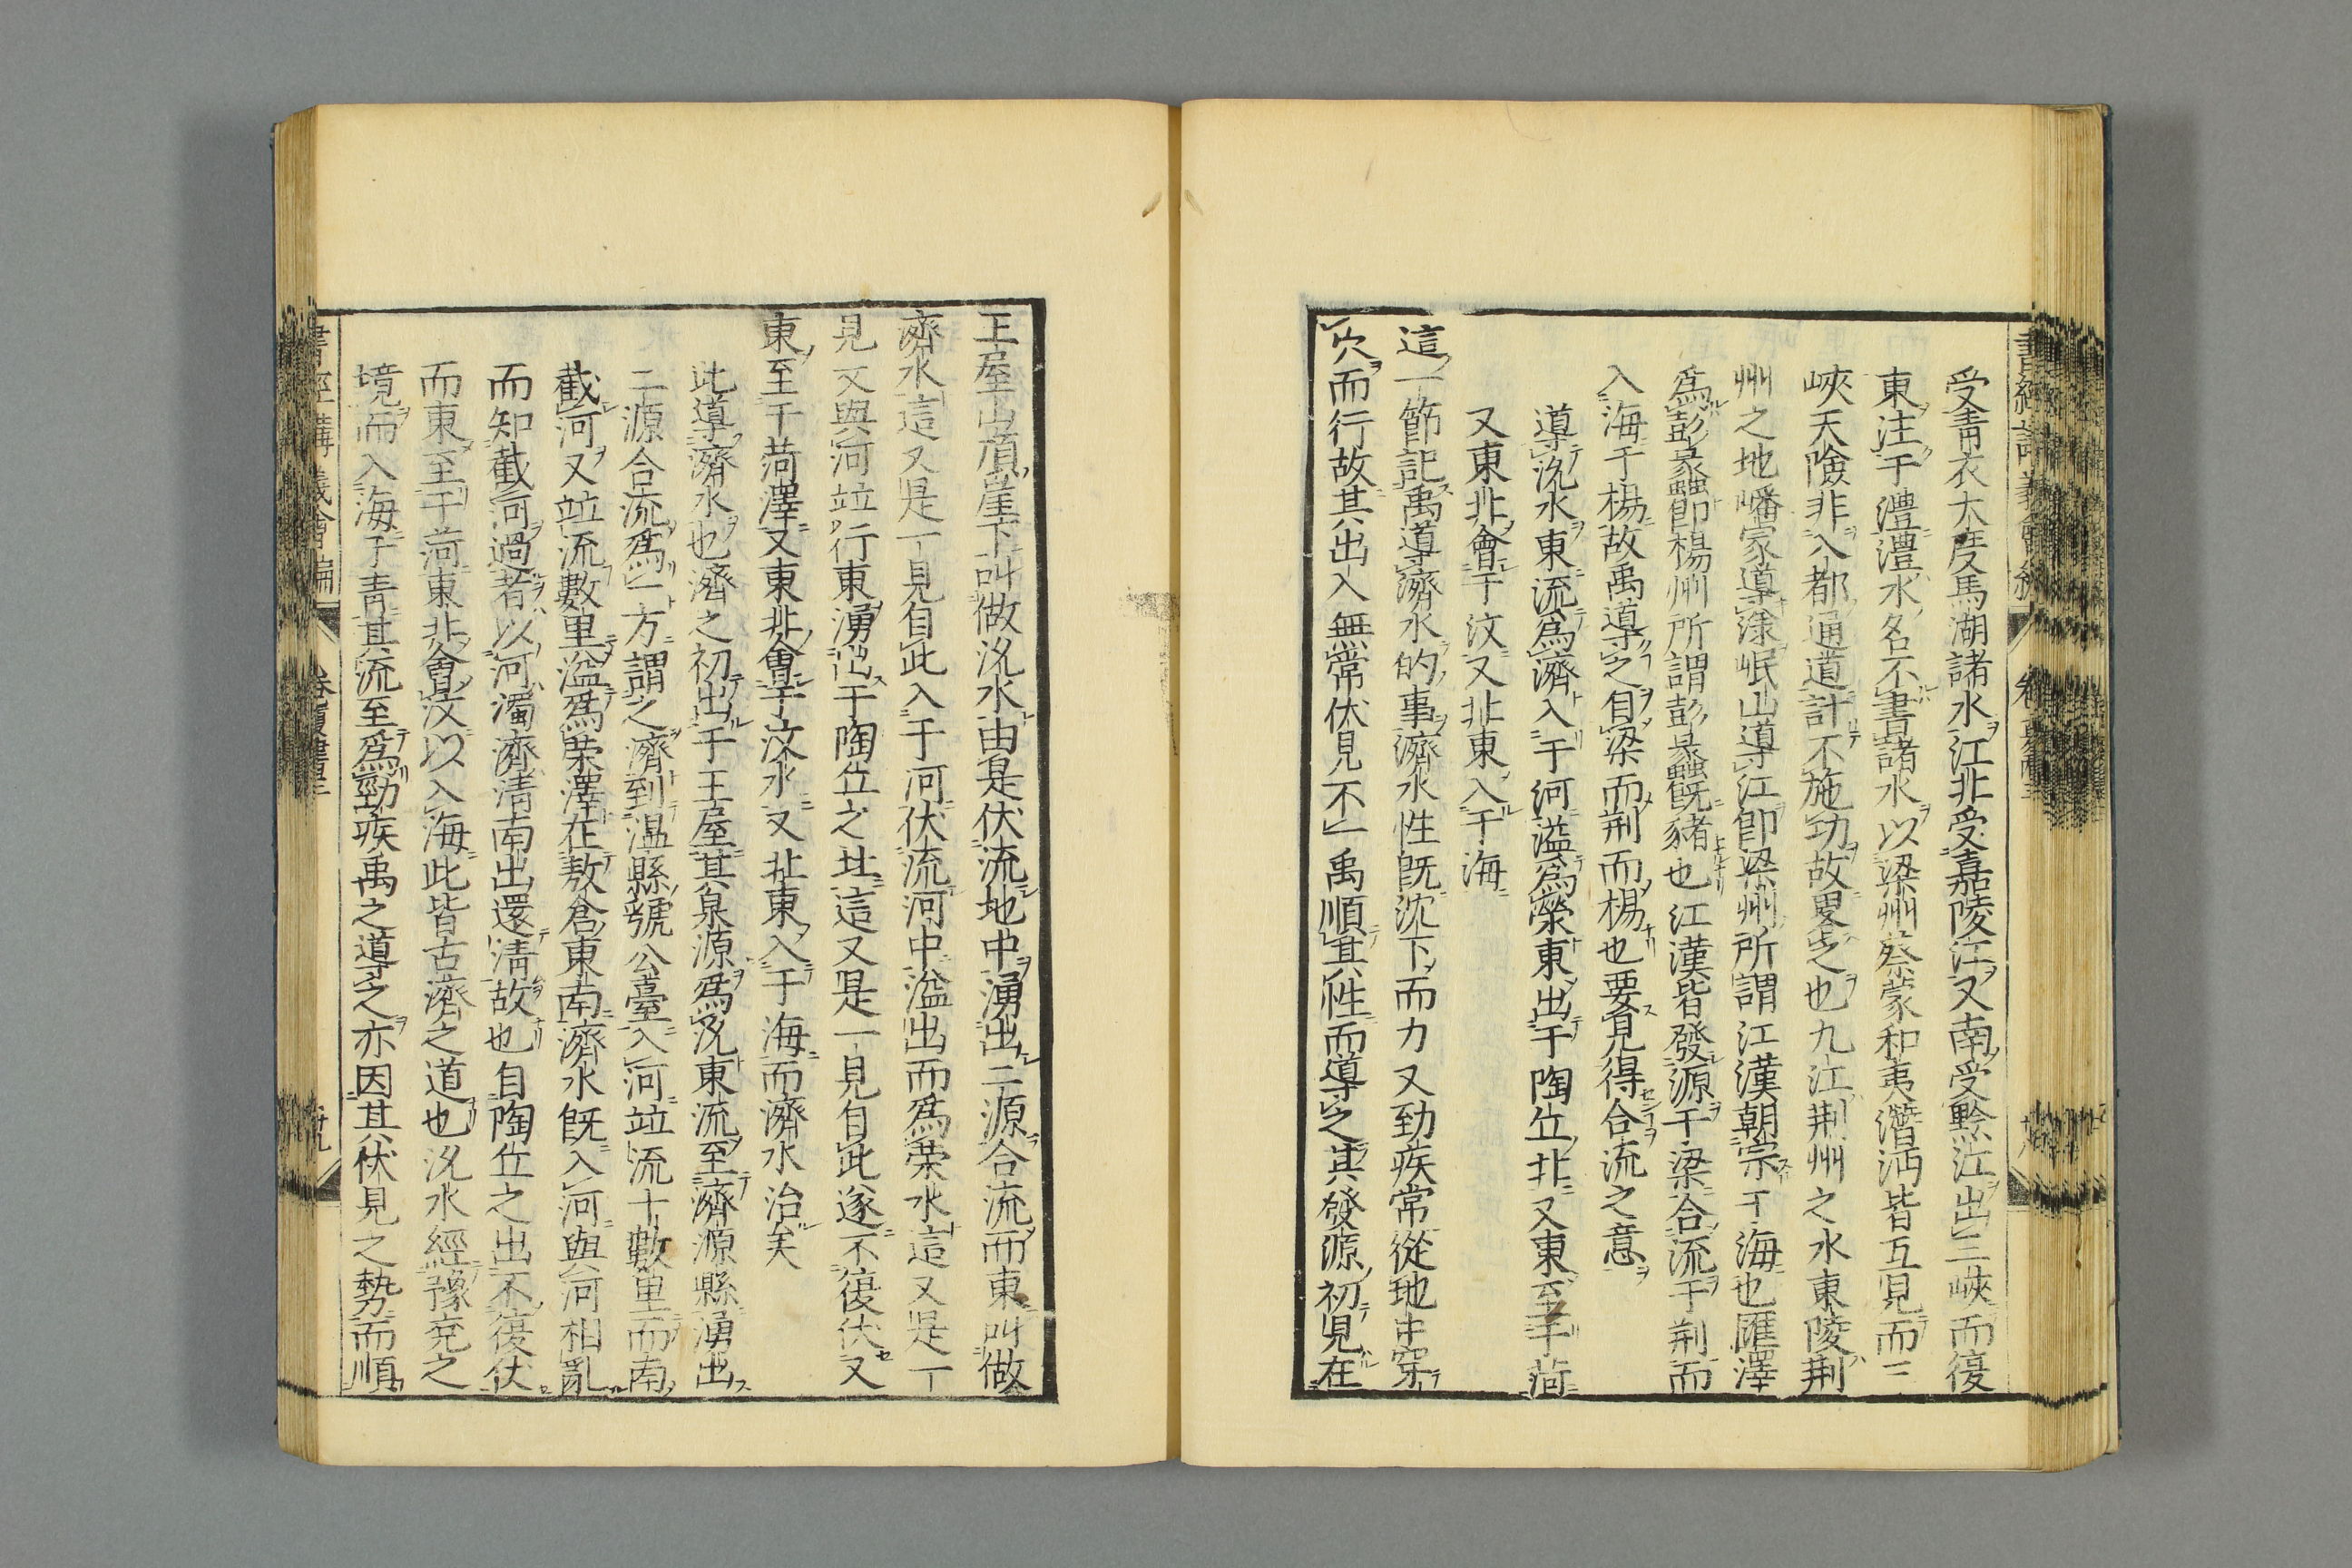 受青衣大度馬湖諸水江北受嘉陵江又南受黔江出三峽而復
東注于澧澧水名不書諸水以梁州蔡蒙和夷潛沔皆互見而三
峽天險非入都通道計不施功故畧之也九江荆州之水東陵荆
州之地嶓冢導漾岷山導江卽梁州所謂江漢朝宗于海也匯澤
爲彭蠡卽楊州所謂彭蠡旣豬也江漢皆發源于梁合流于荆而
入海于楊故禹導之自梁而荆而楊也要見得合流之意
導沇水東流爲濟入于河溢爲榮東出于陶丘北又東至于菏
又東北會于汶又北東入于海
這一節記禹導濟水的事濟水性旣沈下而力又勁疾常從地中穿
穴而行故其出入無常伏見不一禹順其性而導之其發源初見在
王屋山頂崖下叫做沇水由是伏流地中湧出二源合流而東叫做
濟水這又是一見自此入于河伏流河中溢出而爲榮水這又是一
見又與河竝行東湧出于陶丘之北這又是一見自此遂不復伏又
東至于菏澤又東北會于汶水又北東入于海而濟水治矣
此導濟水也濟之初出于王屋其泉源爲沇東流至濟源縣湧出
二源合流爲一方謂之濟到温縣號公臺入河竝流十數里而南
截河又竝流數里溢爲榮澤在敖倉東南濟水旣入河與河相亂
而知截河過者以河濁濟淸南出還淸故也自陶丘之出不復伏
而東至于菏東北會汶以入海此皆古濟之道也沇水經豫兗之
境而入海于青其流至爲勁疾禹之導之亦因其伏見之勢而順
書經講義會編 卷